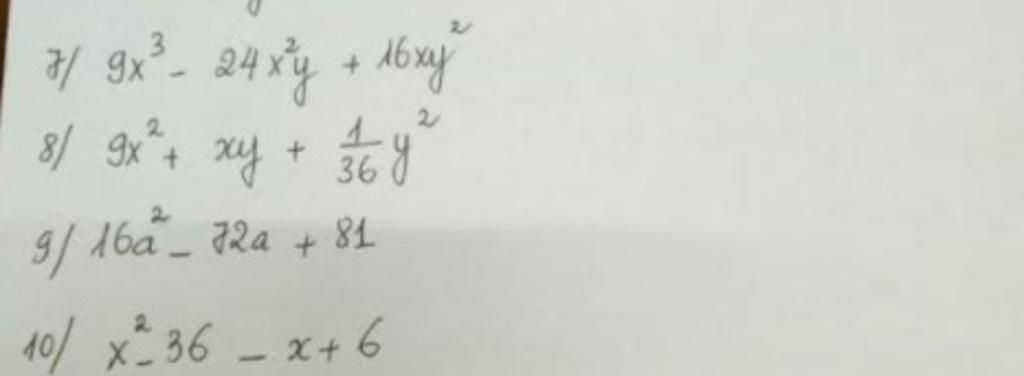 7/ 9x³ - 24x²y + 16xy²
8/ 9x² + xy + 1/36 y²
9/ 16a² - 72a + 81
10/ x² - 36 - x + 6